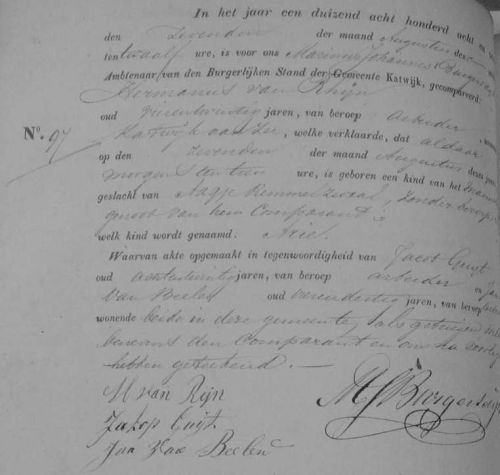 In het jaar een duizend acht honderd acht en
den zevenden der maand Augustus des
ten twaalf ure, is voor ons Marinus Johannes Burgers
Ambtenaar van den Burgerlijken Stand der Gemeente Katwijk, gecompareerd:
Hermanus van Rhijn
oud jaren, van beroep arbeider
No. 97 Katwijk aan Zee, welke verklaarde, dat aldaar
op den zevenden der maand Augustus dezes jaars
morgens ten tien ure, is geboren een kind van het
geslacht van Aagje zonder beroep
genoot van hem Comparant
welk kind wordt genaamd. Arie.
Waarvan akte opgemaakt in tegenwoordigheid van Jacob Guyt
oud jaren, van beroep arbeider en Jan
van Beelen oud jaren, van beroep
wonende beide in deze gemeente, als getuigen
benevens den Comparant en ons na
hebben geteekend. —
H van Rijn
Jakop Guijt
Jan van Beelen
MJ Burgers